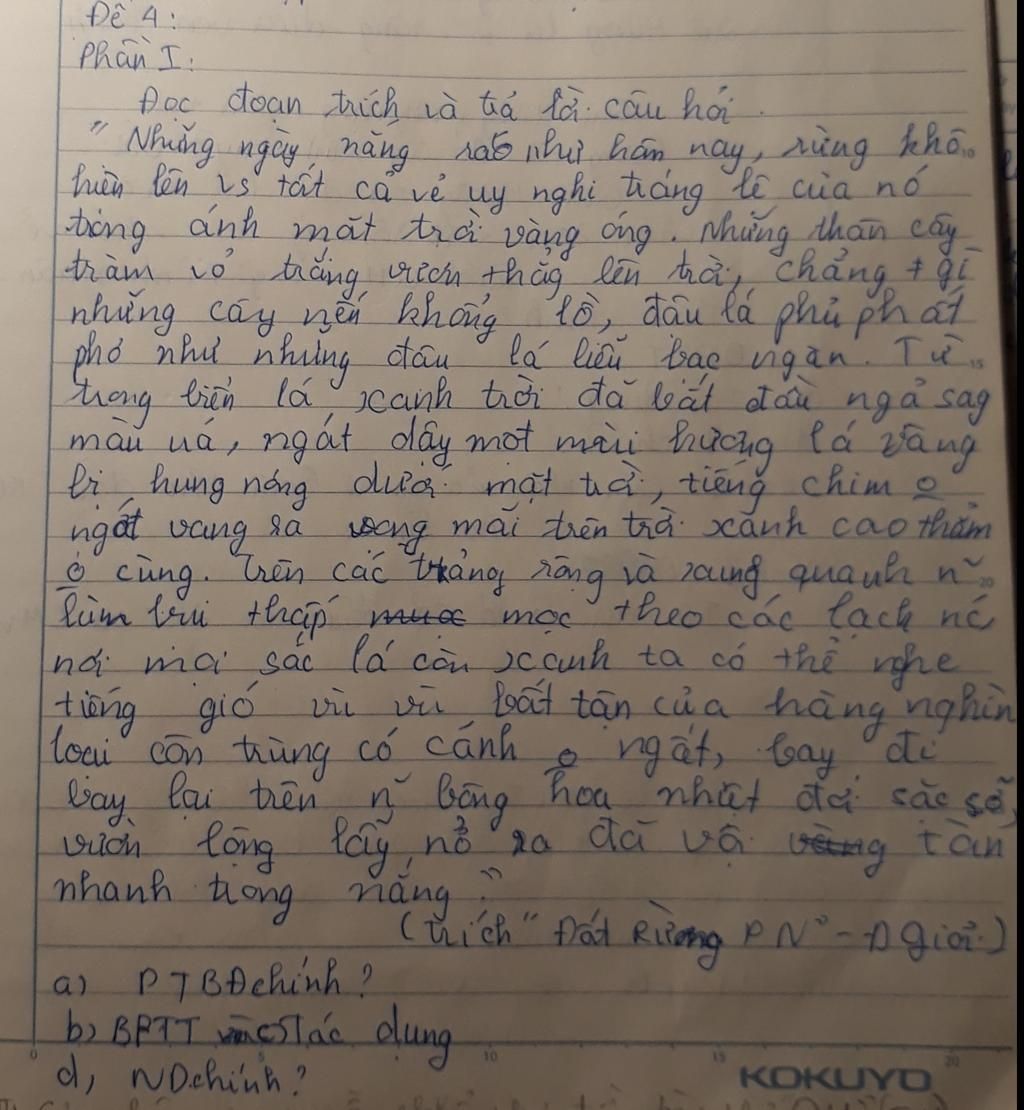 Đề 4:
Phần I:
Đọc đoạn trích và trả lời câu hỏi.
"Những ngày nắng ráo như hôm nay, rừng khô
hiện lên vs tất cả vẻ uy nghi tráng lệ của nó
trong ánh mặt trời vàng óng. Những thân cây
tràm vỏ trắng vươn thẳg lên trời, chẳng + gì
những cây nến khổng lồ, đầu lá phủ phất
phơ như những đầu lá liễu bạc ngàn. Từ
trong biển lá xanh trời đã bắt đầu ngả sag
màu úa, ngát dậy một mùi hương lá vàng
bị hung nóng dưới mặt trời, tiếng chim o
ngớt vang ra vọng mãi trên trời xanh cao thẳm
o cùng. Trên các trảng rộng và xung quanh n~
lùm bụi thấp mọc theo các lạch nc
nơi mọi sắc lá còn xanh ta có thể nghe
tiếng gió vì vù bất tận của hàng nghìn
loại côn trùng có cánh o ngớt, bay đi
bay lại trên n~ bông hoa nhiệt đới sặc sỡ,
vườn lộng lẫy, nở ra đã vội tàn
nhanh trong nắng."
(trích "Đất Rừng PN" - Đ Giỏi.)
a) PTBĐ chính?
b) BPTT tác dụng
d, ND chính?
0 5 10 15 20
KOKUYO